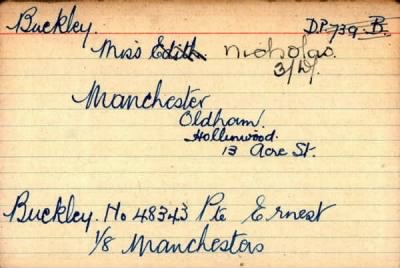 Buckley. D.P. 739. B.
Miss Edith. Nicholas.
3/D/.
Manchester
Oldham.
Hollinwood.
13 Acre St.
Buckley. No 48343 Pte Ernest
1/8 Manchesters